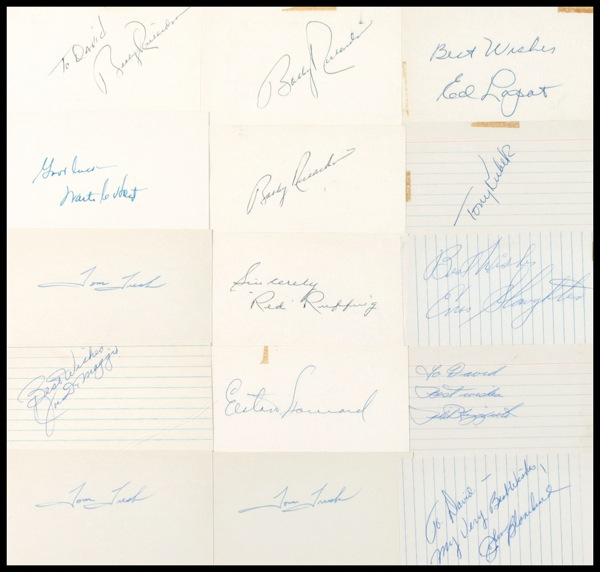 To David
Bobby Richardson
Bobby Richardson
Best Wishes
Ed Lopat
Good luck
Waite C Hoyt
Bobby Richardson
Tony Kubek
Tom Tresh
Sincerely
"Red" Ruffing
Best Wishes
Enos Slaughter
Best Wishes
Joe DiMaggio
Elston Howard
To David
Best wishes
Phil Rizzuto
Tom Tresh
Tom Tresh
To David -
My Very Best Wishes,
John Blanchard